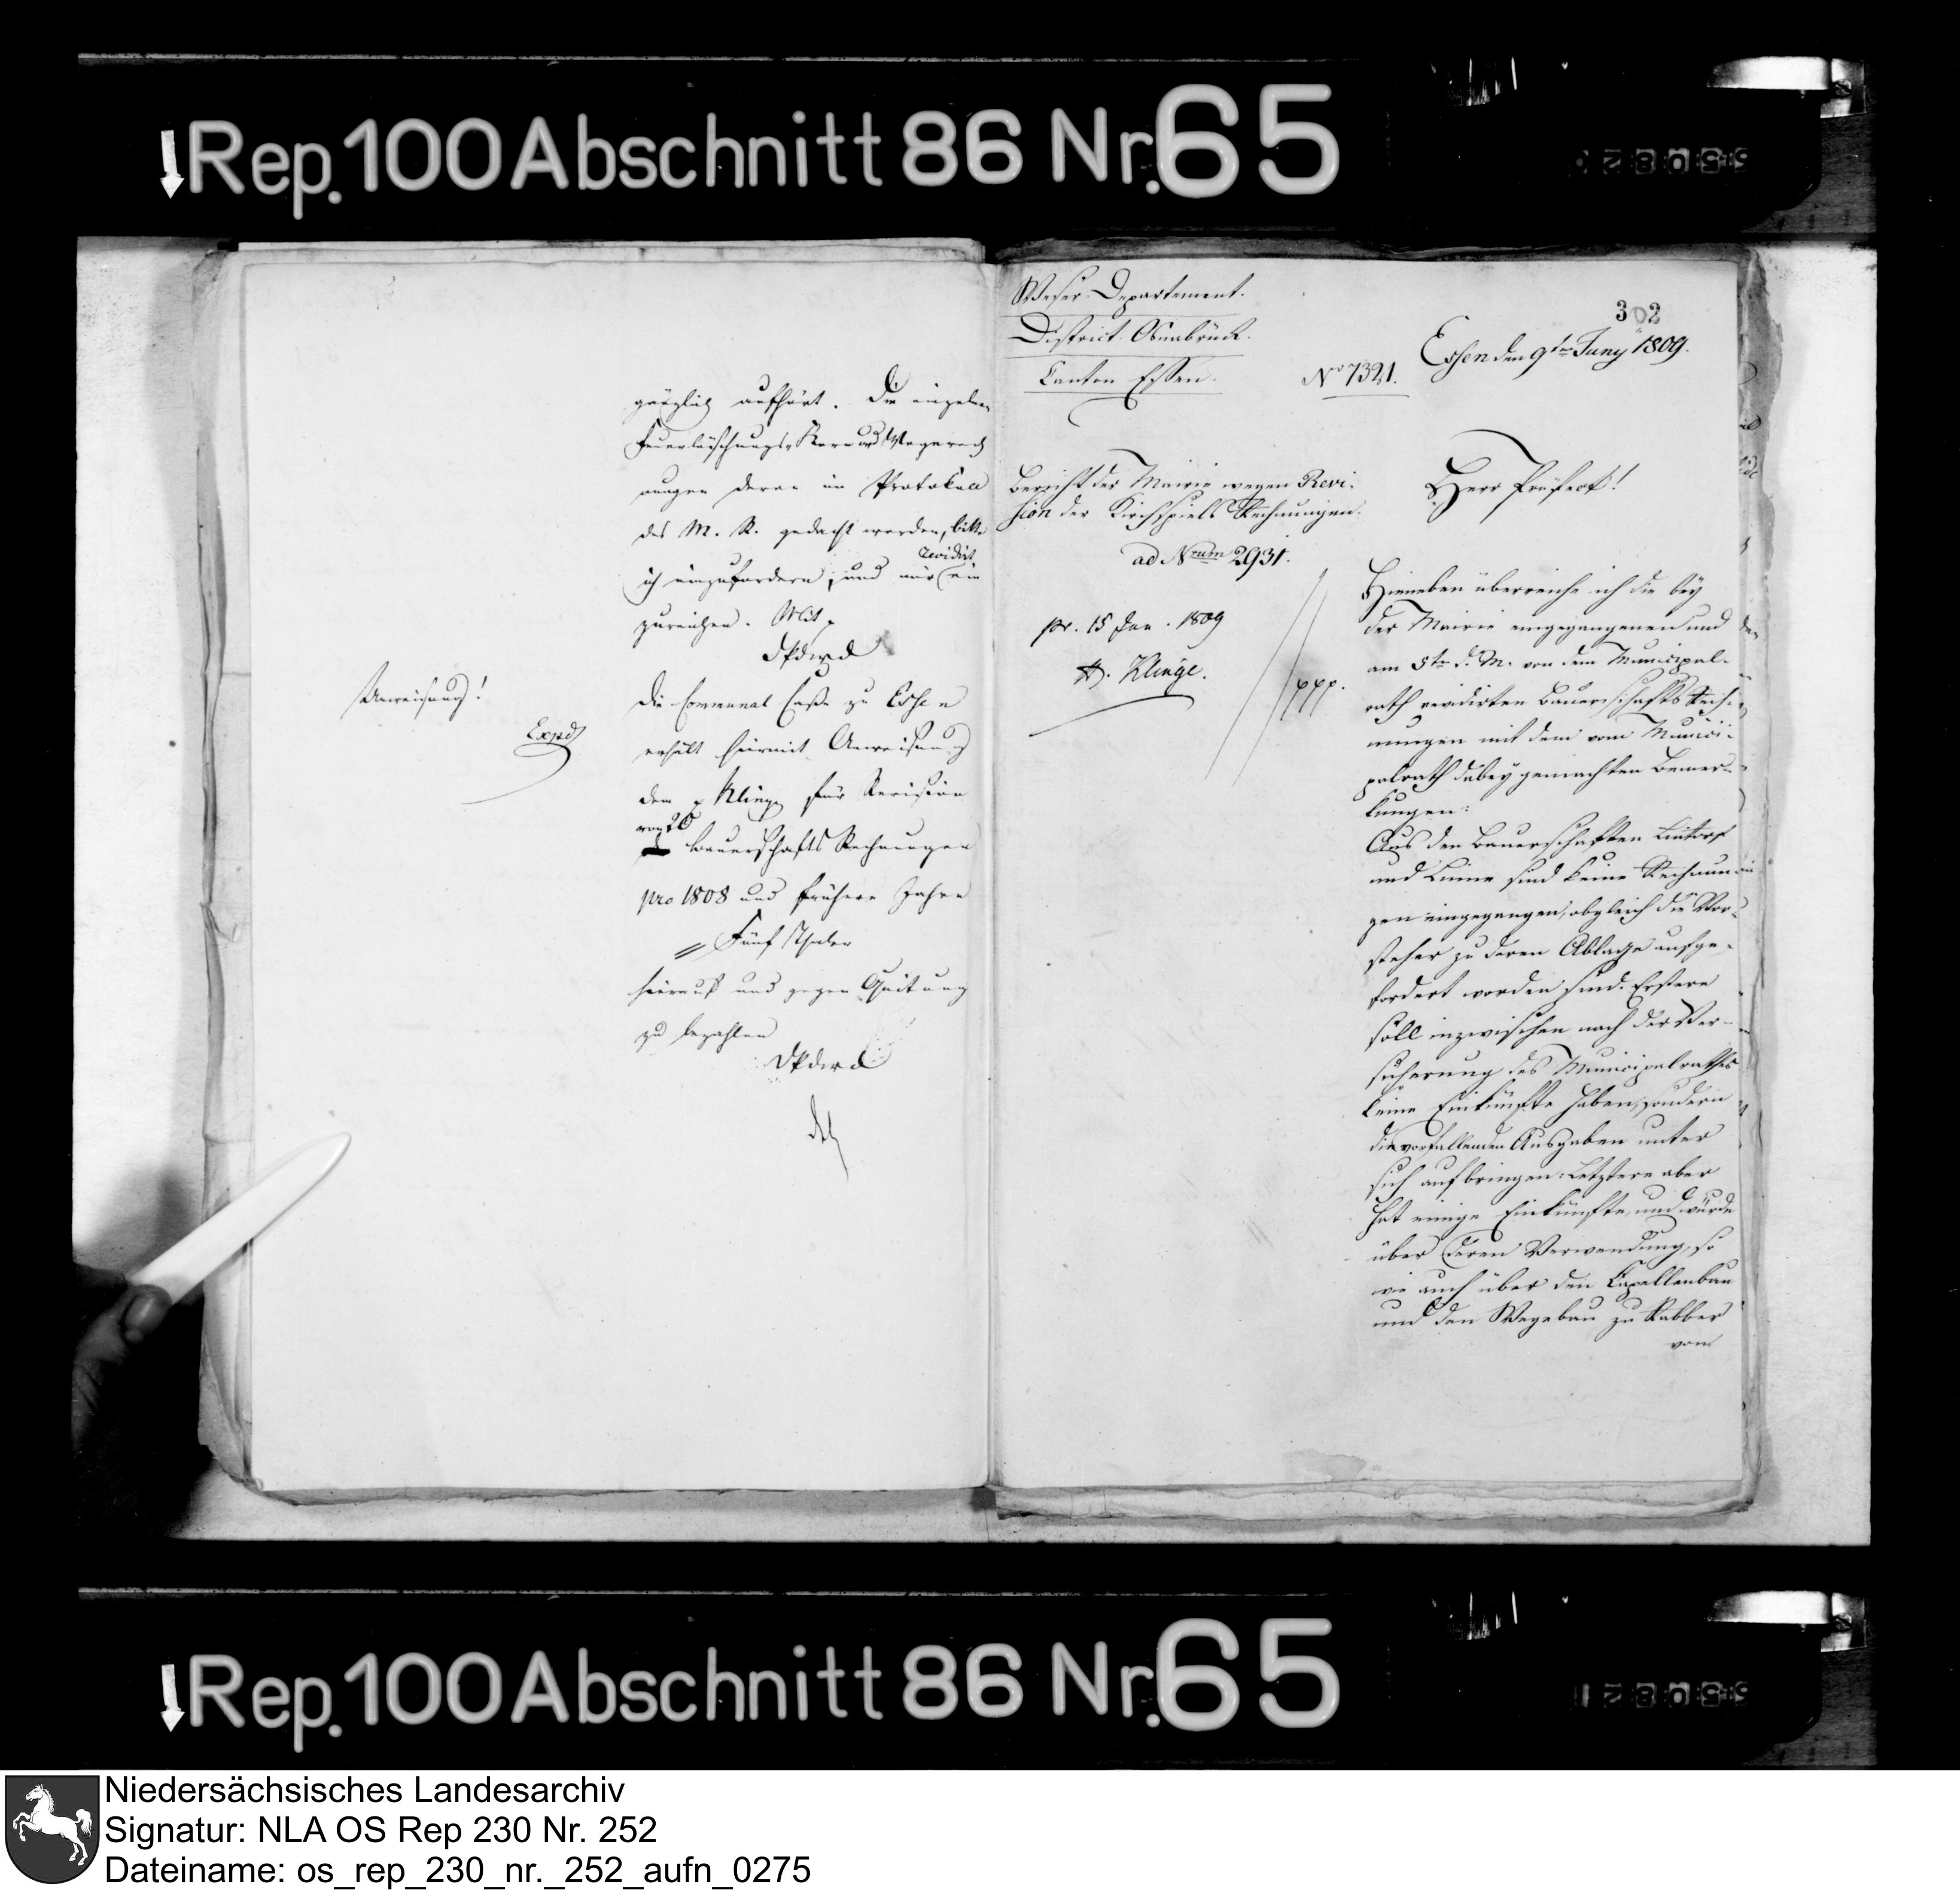 Rep. 100 Abschnitt 86 Nr. 65
gänzlich aufhört. Die einzelnen
Feuerlöschungs, Korn und Wegerech
nungen deren im Protokolle
des M. R. gedacht worden, bitte
ich einzufordern, und mir revidirt ein
zureichen. Mit
Anweisung!
Expd
Die Communal Casse zu Essen
erhält hiermit Anweisung
dem Klinge für Revision
von 20
Bauerschafts Rechnungen
pro 1808 und frühere Jahre
Fünf Thaler
hierauf und gegen Quitung
zu bezahlen
Weser-Departement.
District Osnabrück.
Canton Essen.
No 7321.
302
Essen den 9ten Juny 1809.
Bericht der Mairie wegen Revi-
sion der Kirchspiels Rechnungen.
ad Nrum 2931.
pr. 15 Jun. 1809
H. Klinge.
Herr Präfect!
Hieneben überreiche ich die bey
der Mairie eingegangenen und
am 5ten d. M. von dem Municipal-
rath revidirten Bauerschafts Rech-
nungen mit dem vom Munici-
palrath dabey gemachten Bemer-
kungen:
Aus den Bauerschaften Lintorf
und Linne sind keine Rechnun-
gen eingegangen, obgleich die Vor-
steher zu deren Ablage aufge-
fordert worden sind. Erstere
soll inzwischen nach der Ver-
sicherung des Municipalrathes
keine Einkünfte haben, sondern
die vorfallenden Ausgaben unter
sich aufbringen: Letztere aber
hat einige Einkünfte, und würde
über deren Verwendung, so
wie auch über den Capellenbau
und den Wegebau zu Rabber
vom
Rep. 100 Abschnitt 86 Nr. 65
Niedersächsisches Landesarchiv
Signatur: NLA OS Rep 230 Nr. 252
Dateiname: os_rep_230_nr._252_aufn_0275